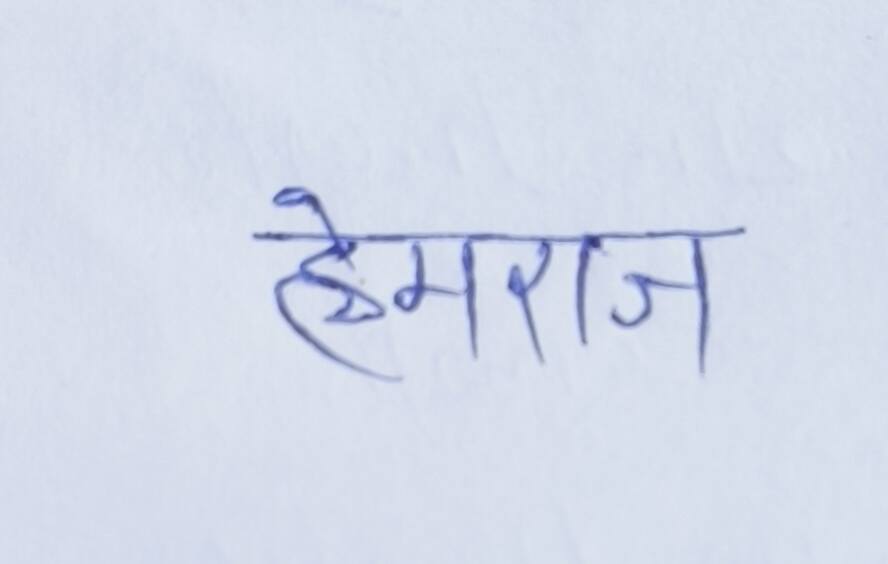 हेमराज